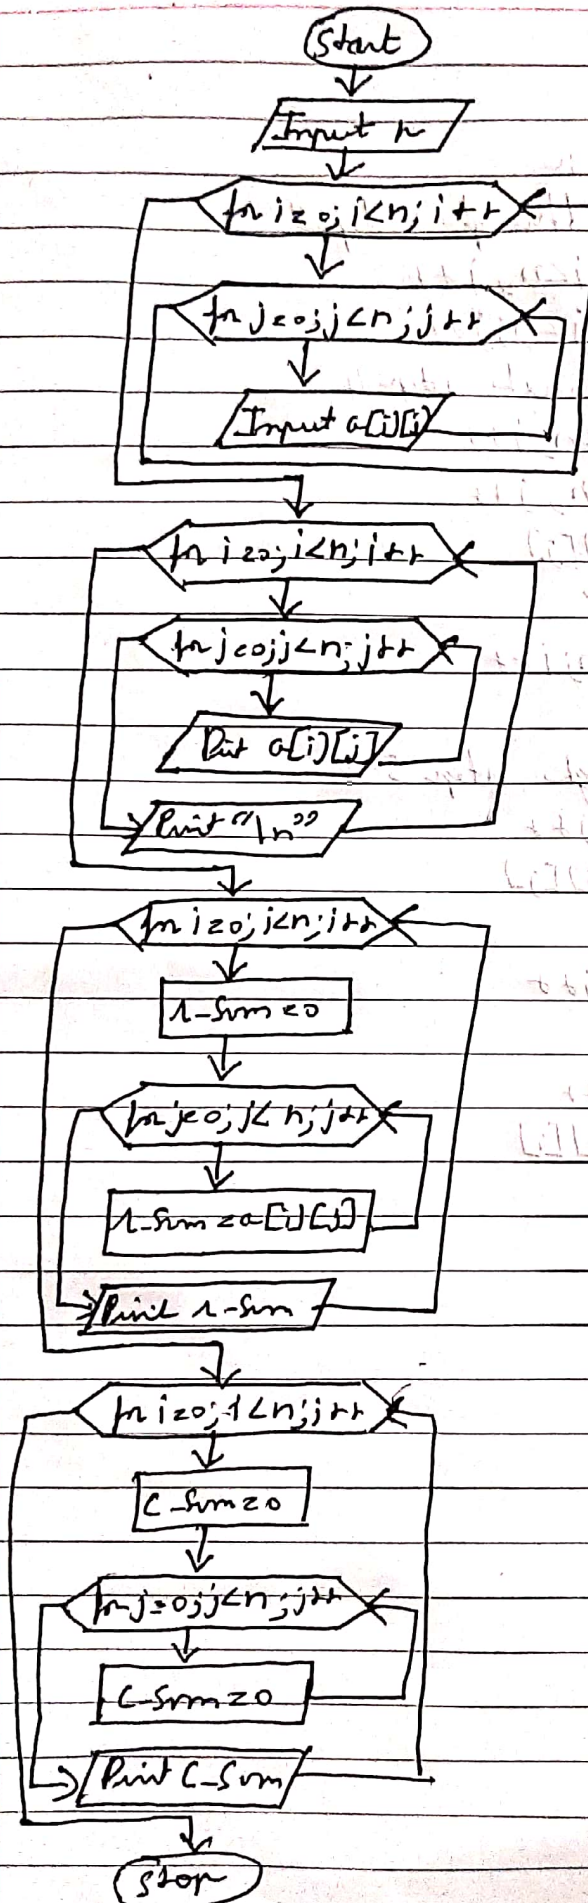 Start
Input n
for i=0; i<n; i++
for j=0; j<n; j++
Input a[i][j]
for i=0; i<n; i++
for j=0; j<n; j++
Print a[i][j]
Print "\n"
for i=0; i<n; i++
r_sum=0
for j=0; j<n; j++
r_sum=a[i][j]
Print r_sum
for i=0; i<n; j++
C_sum=0
for j=0; j<n; j++
C_sum=0
Print C_sum
stop